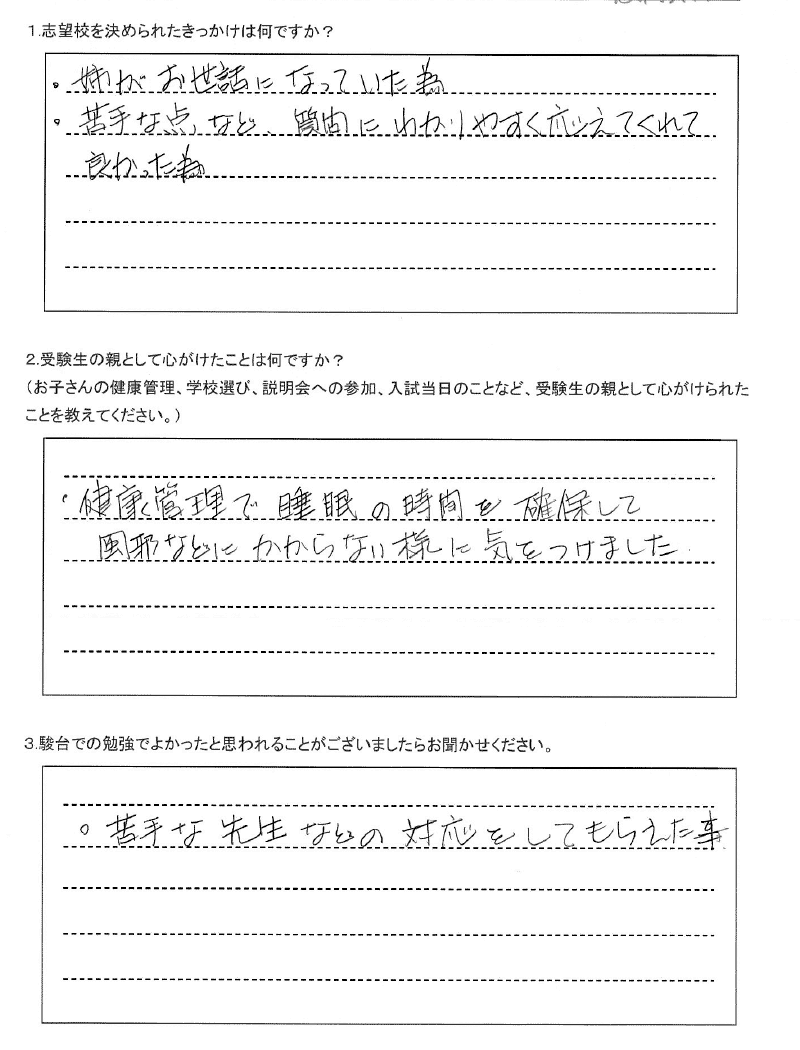 1.志望校を決められたきっかけは何ですか？
。姉がお世話になっていた為
。苦手な点,など、質問にわかりやすく応えてくれて
良かった為
2.受験生の親として心がけたことは何ですか？
（お子さんの健康管理、学校選び、説明会への参加、入試当日のことなど、受験生の親として心がけられた
ことを教えてください。）
・健康管理で睡眠の時間を確保して
風邪などにかからない様に気をつけました.
3.駿台での勉強でよかったと思われることがございましたらお聞かせください。
。苦手な先生などの対応をしてもらえた事